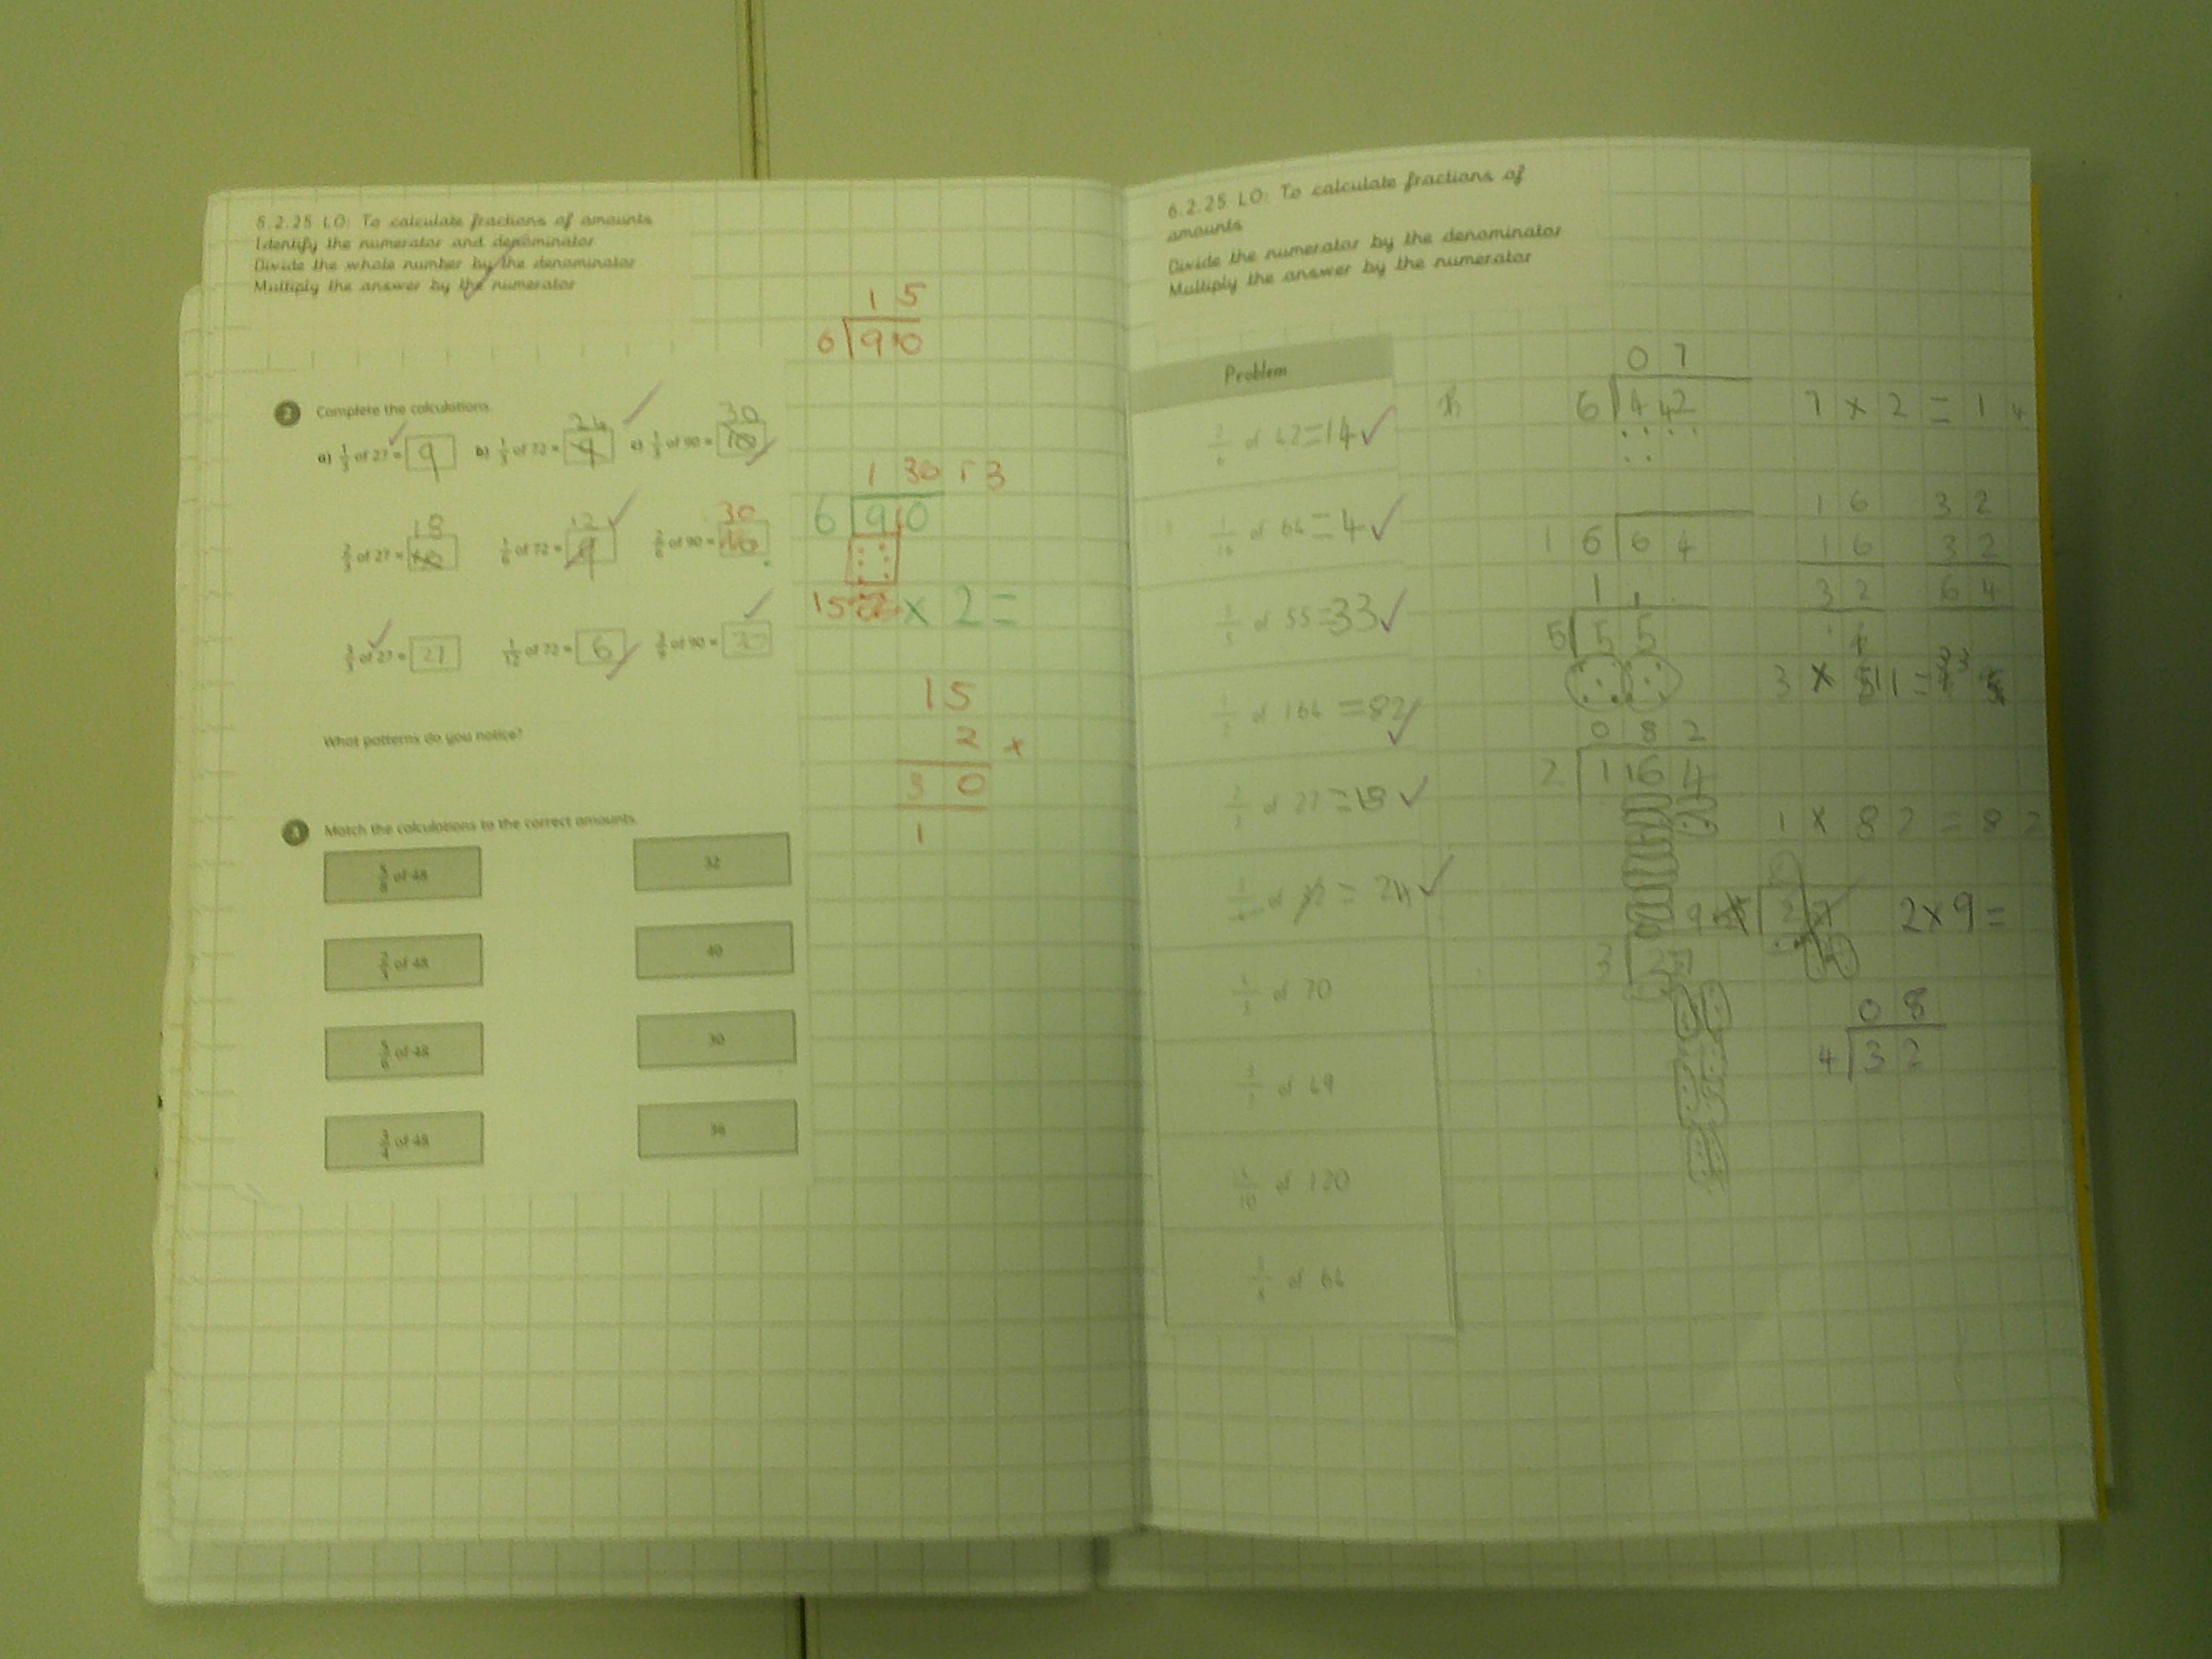 5.2.25 LO: To calculate fractions of amounts
Identify the numerator and denominator
Divide the whole number by the denominator
Multiply the answer by the numerator
2 Complete the calculations.
a) 1/3 of 27 = 9 b) 1/3 of 72 = 24 c) 1/3 of 90 = 30
2/3 of 27 = 18 1/6 of 72 = 12 2/6 of 90 = 30
3/3 of 27 = 27 1/12 of 72 = 6 3/9 of 90 = 30
What patterns do you notice?
3 Match the calculations to the correct amounts.
5/8 of 48 32
2/3 of 48 40
5/6 of 48 30
3/4 of 48 36
1 5
6 9 10
1 30 r 3
6 9 10
15 x 2 =
15
2 x
3 0
1
6.2.25 LO: To calculate fractions of
amounts
Divide the numerator by the denominator
Multiply the answer by the numerator
Problem
2/6 of 42 = 14
1/16 of 64 = 4
3/5 of 55 = 33
1/2 of 164 = 82
2/3 of 27 = 18
of = 24
of 70
of 49
of 120
of 64
0 7
6 4 42
7 x 2 = 14
1 6 6 4
1 6 3 2
1 6 3 2
3 2 6 4
1 1
5 5 5
3 x 11 = 33
0 8 2
2 1 16 4
1 x 8 2 = 8 2
2 x 9 =
0 8
4 3 2